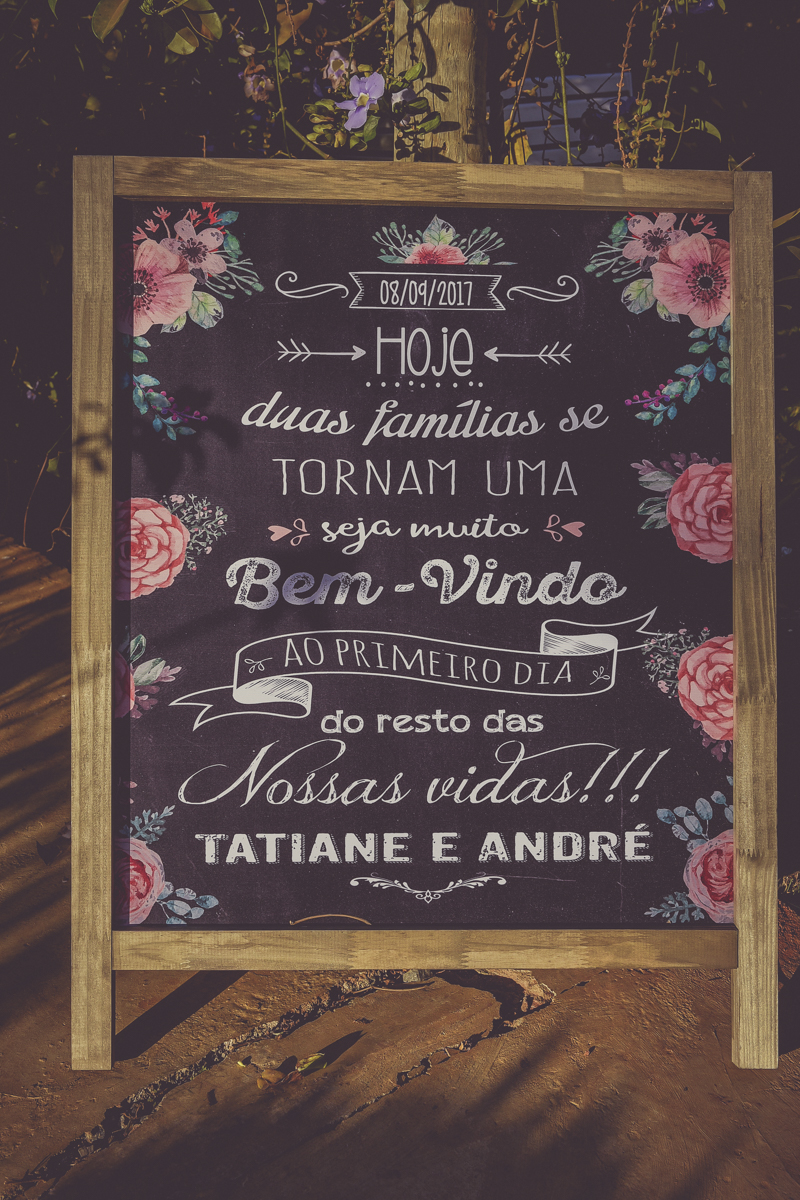 08/09/2017
Hoje
duas famílias se
TORNAM UMA
seja muito
Bem-Vindo
AO PRIMEIRO DIA
do resto das
Nossas vidas!!!
TATIANE E ANDRÉ